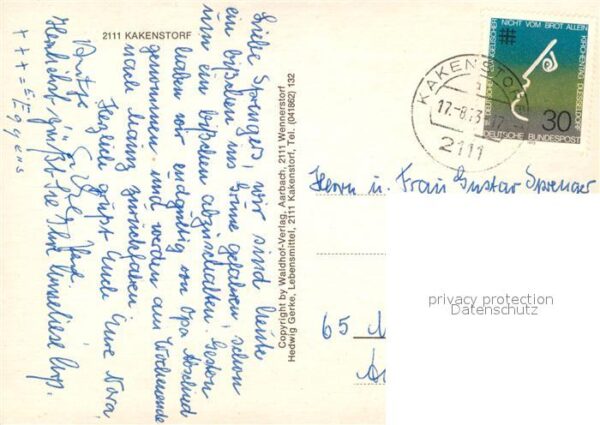 2111 KAKENSTORF
Liebe Sprengers, wir sind heute
ein bißchen ins Grüne gefahren, schon
um ein bißchen abzuschalten. Gestern
haben wir endgültig von Opa Abschied
genommen und werden am Wochenende
nach Mainz zurückfahren
Herzliche grüßt Euch Eure Nora
Antje
Herzlichst grüßt Sie Ihre Anneliese
+++ = Eggers
Copyright by Waldhof-Verlag, Aarbach, 2111 Wennerstorf
Hedwig Gerke, Lebensmittel, 2111 Kakenstorf, Tel. (041862) 132
NICHT VOM BROT ALLEIN
KIRCHENTAG DUESSELDORF
DEUTSCHE BUNDESPOST
30
KAKENSTORF
17.-8.73
2111
Herrn u. Frau Gustav Sprenger
65
privacy protection
Datenschutz